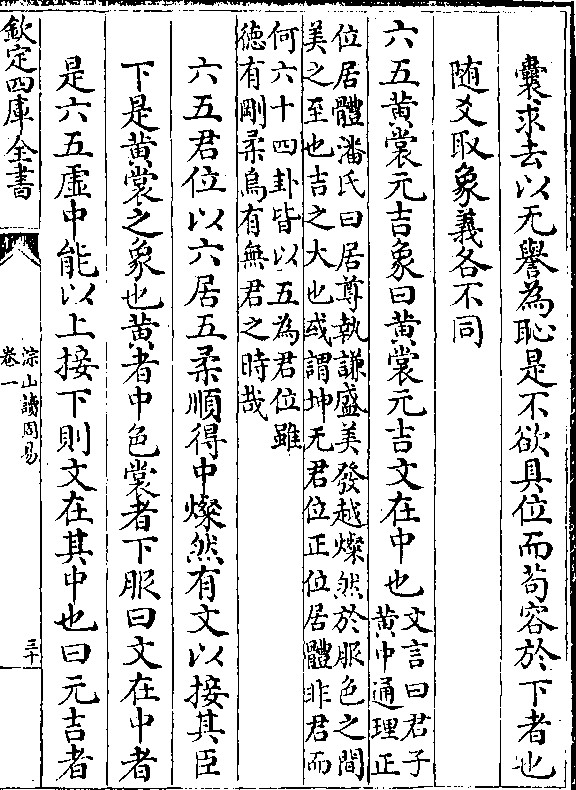 囊求去以无譽為恥是不欲具位而苟容於下者也
随爻取象義各不同
六五黄裳元吉象曰黄裳元吉文在中也
文言曰君子
黄中通理正
位居體潘氏曰居尊執謙盛美發越燦然於服色之間
美之至也吉之大也或謂坤无君位正位居體非君而
何六十四卦皆以五為君位雖
徳有剛柔烏有無君之時哉
六五君位以六居五柔順得中燦然有文以接其臣
下是黄裳之象也黄者中色裳者下服曰文在中者
是六五虚中能以上接下則文在其中也曰元吉者
欽定四庫全書
淙山讀周易
卷一
三十